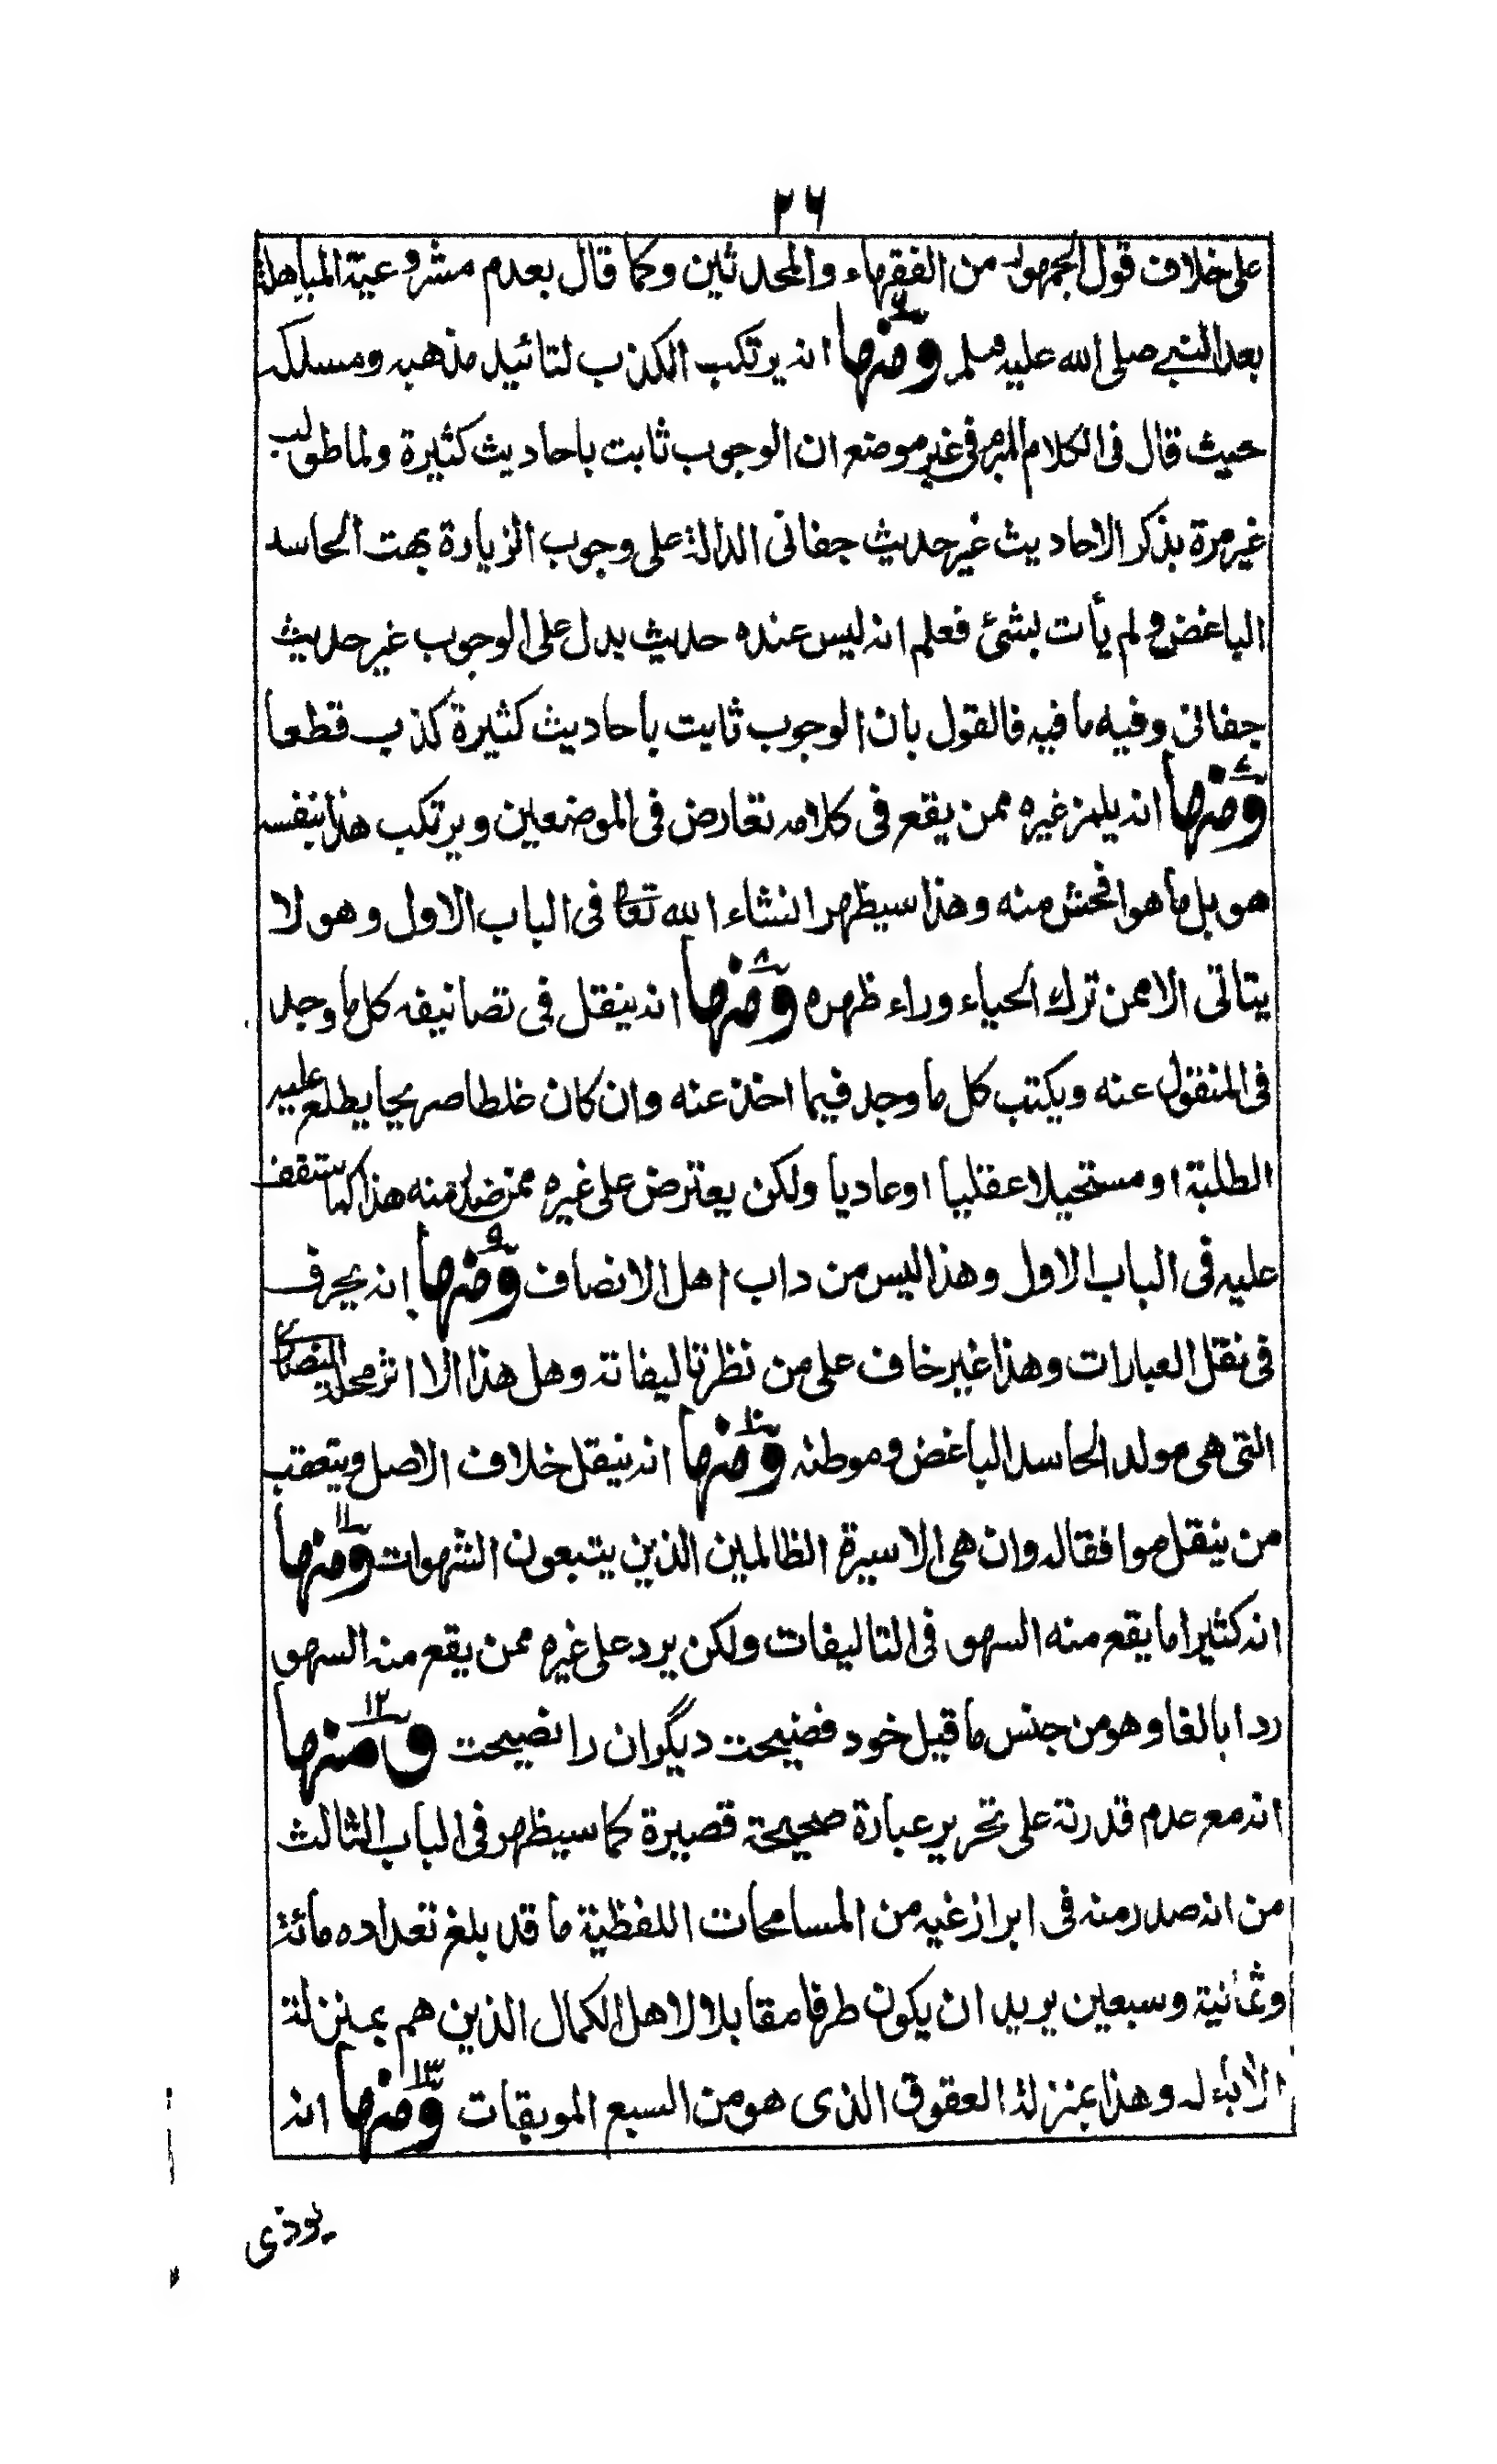 ٢٦
على خلاف قول الجمهور من الفقهاء والمحدثين وكما قال بعدم مشروعية المباهلة
بعد النبي صلى الله عليه وسلم ومنها انه يرتكب الكذب لتائيد مذهبه ومسلكه
حيث قال فى الكلام المبرم فى غير موضع ان الوجوب ثابت باحاديث كثيرة ولما طولب
غير مرة بذكر الاحاديث غير حديث جفانى الدالة على وجوب الزيارة بهت الحاسد
الباغض ولم يأت بشئ فعلم انه ليس عنده حديث يدل على الوجوب غير حديث
جفانى وفيه ما فيه فالقول بان الوجوب ثابت باحاديث كثيرة كذب قطعا
ومنها٧ انه يلمز غيره ممن يقع فى كلامه تعارض فى الموضعين ويرتكب هذا بنفسه
هو بل ما هو افحش منه وهذا سيظهر انشاء الله تعالى فى الباب الاول وهو لا
يتاتى الا ممن ترك الحياء وراء ظهره ومنها٨ انه ينقل فى تصانيفه كل ما وجد
فى المنقول عنه ويكتب كل ما وجد فيما اخذ عنه وان كان غلطا صريحا يطلع عليه
الطلبة او مستحيلا عقليا او عاديا ولكن يعترض على غيره ممن صدر منه هذا كما ستقف
عليه فى الباب الاول وهذا ليس من داب اهل الانصاف ومنها٩ انه يحرف
فى نقل العبارات وهذا غير خاف على من نظر تاليفاته وهل هذا الا اثر محلة النصارى
التى هى مولد الحاسد الباغض وموطنه ومنها١٠ انه ينقل خلاف الاصل ويتعقب
من ينقل موافقا له وان هى الا سيرة الظالمين الذين يتبعون الشهوات ومنها١١
انه كثيرا ما يقع منه السهو فى التاليفات ولكن يرد على غيره ممن يقع منه السهو
ردا بالغا وهو من جنس ما قيل خود فضيحت ديگران را نصيحت ومنها١٢
انه مع عدم قدرته على تحرير عبارة صحيحة قصيرة كما سيظهر فى الباب الثالث
من انه صدر منه فى ابراز غيه من المسامحات اللفظية ما قد بلغ تعداده مائة
وثمانية وسبعين يريد ان يكون طرفا مقابلا لاهل الكمال الذين هم بمنزلة
الاباء له وهذا بمنزلة العقوق الذى هو من السبع الموبقات ومنها١٣ انه
يوذى